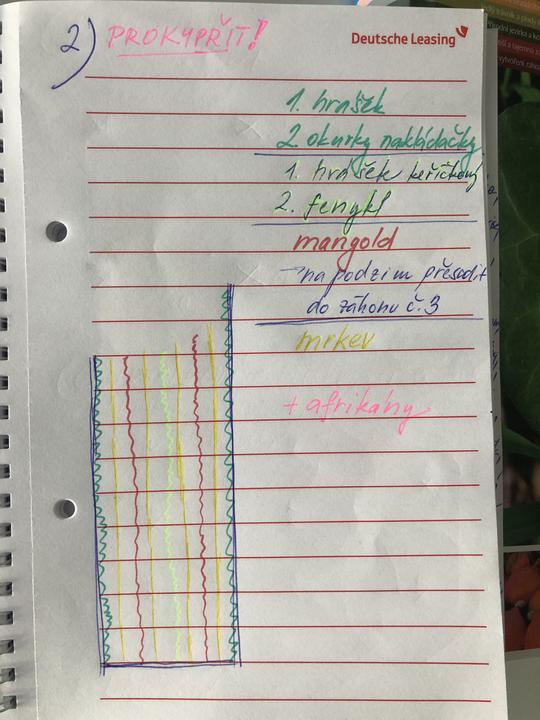 2) PROKYPŘIT!
Deutsche Leasing
1. hrášek
2. okurky nakládačky
1. hrášek keříčkový
2. fenykl
mangold
→ na podzim přesadit
do záhonu č.3
mrkev
+ afrikány